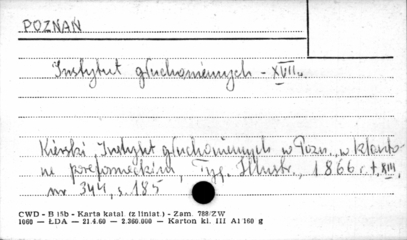 POZNAŃ
Instytut głuchoniemych - XVII w.
Kierski Instytut głuchoniemych w Pozn., w klaszto-
ne poreformackim, Tyg. Illustr., 1866 r. t. XIII,
nr. 344, s. 185
CWD - B 15b - Karta katal. (z liniat.) - Zam. 788/ZW
1060 — ŁDA — 21.4.60 — 2.360.000 — Karton kl. III A1 160 g